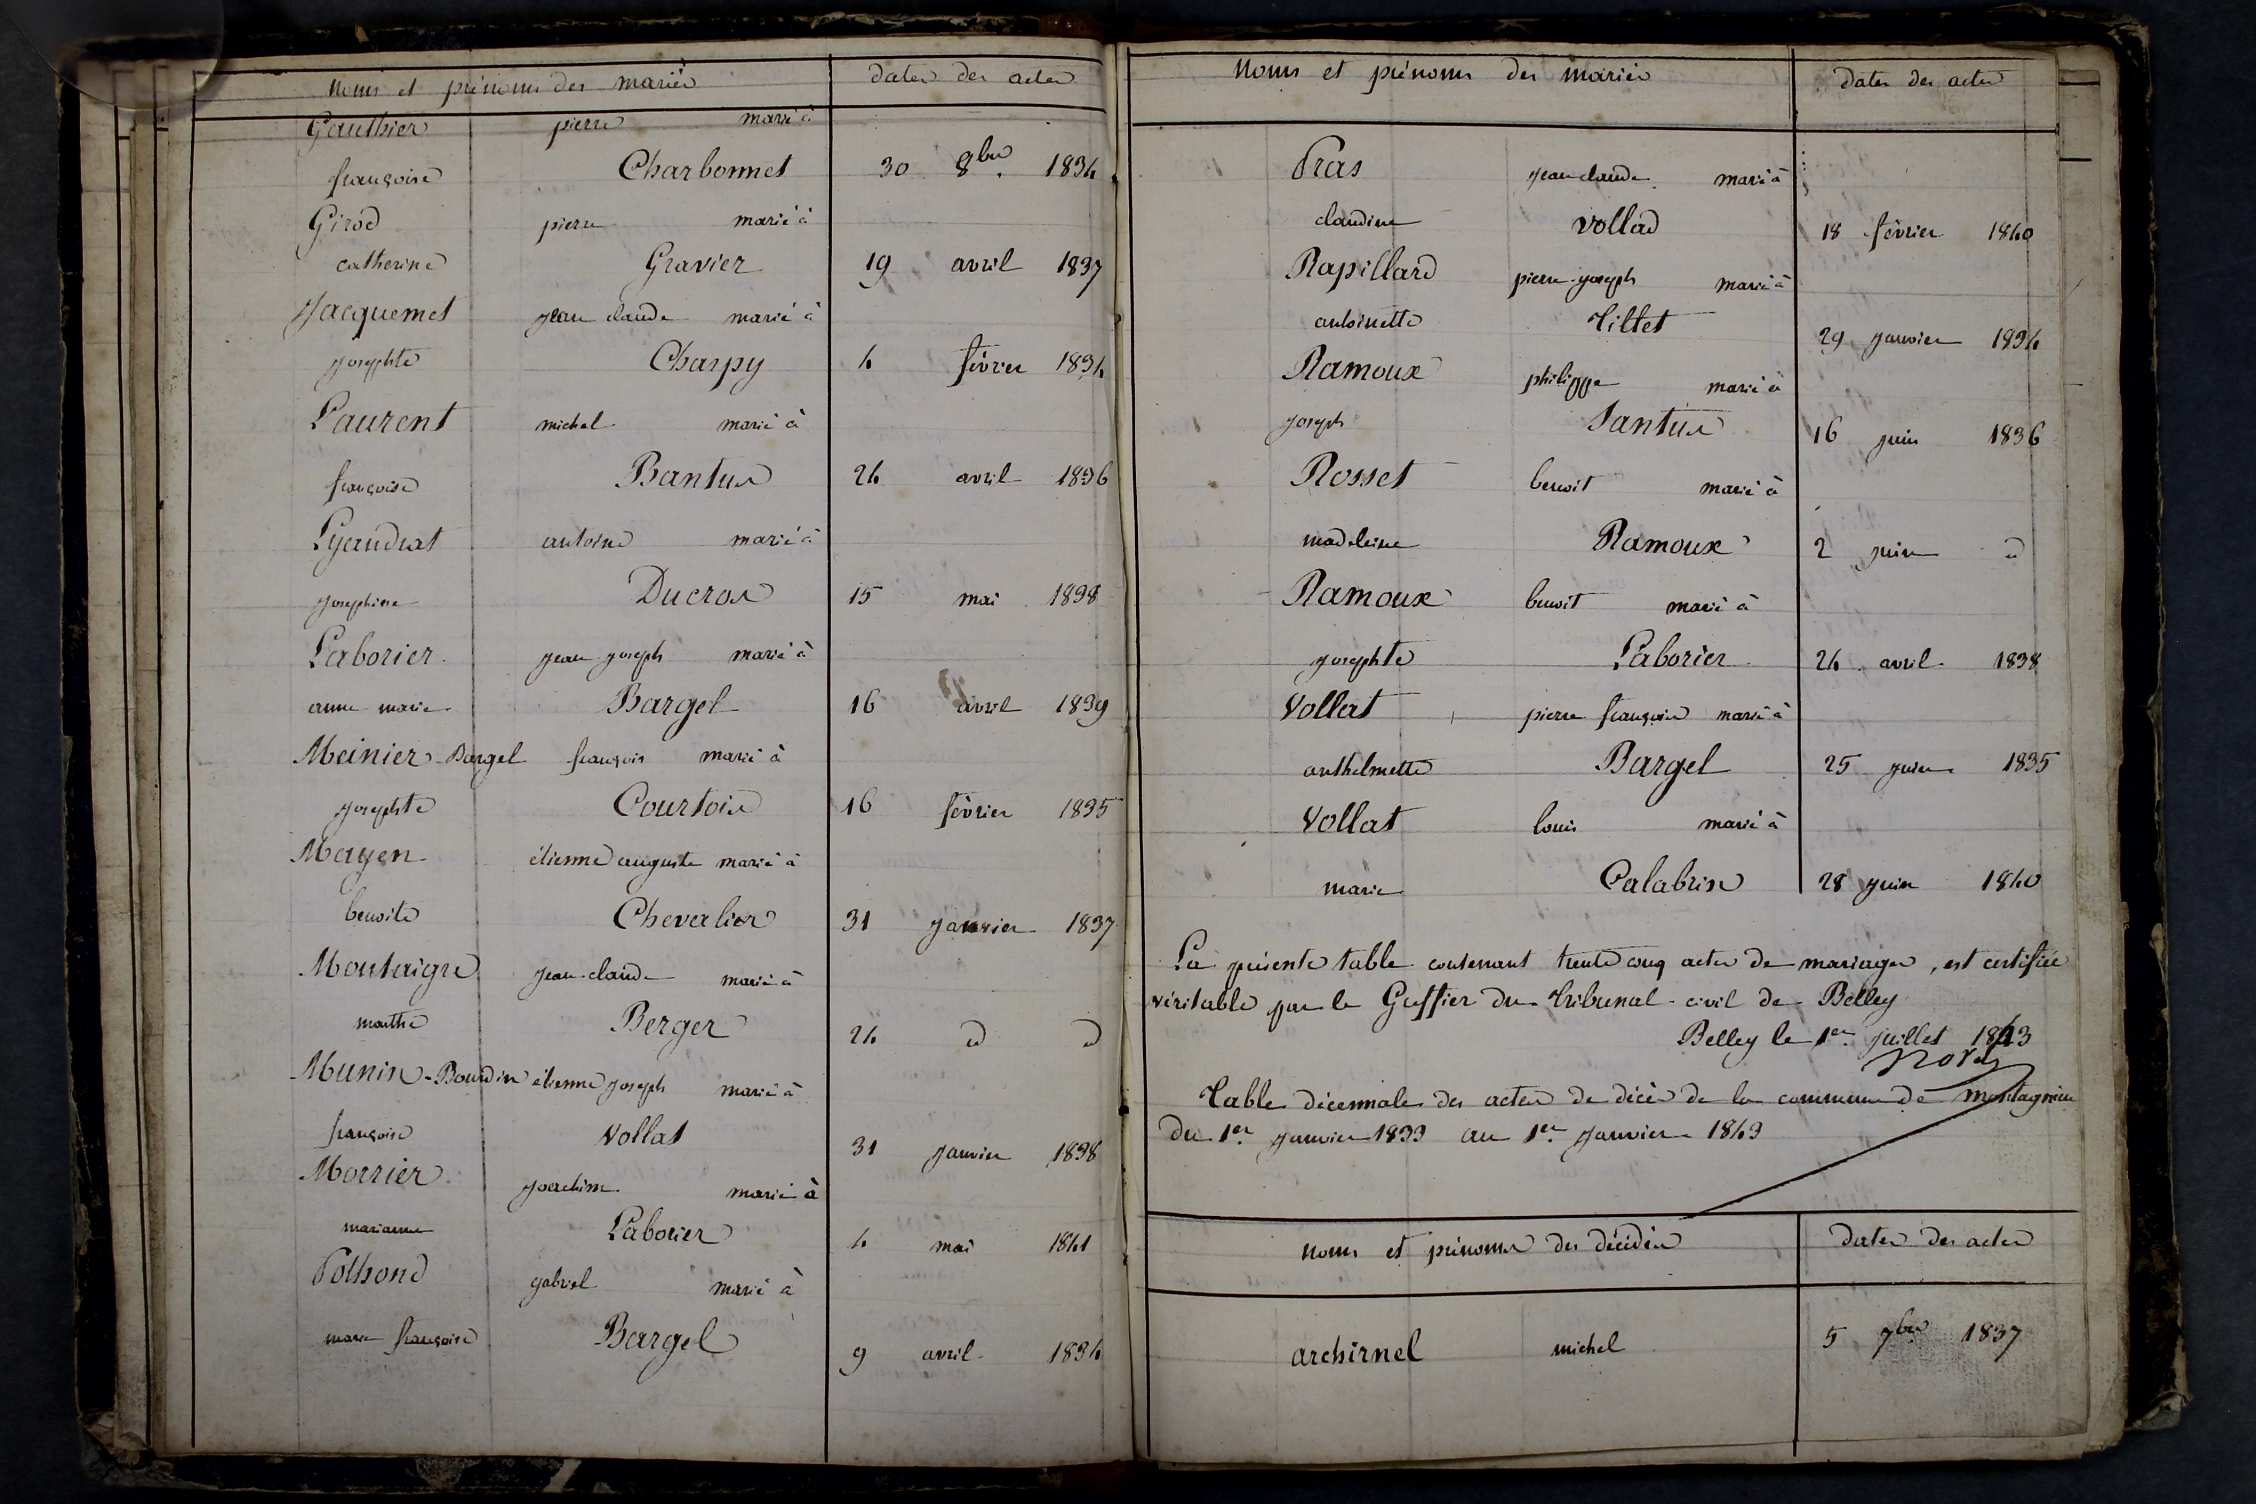 Noms et prénoms des mariés dates des actes
Gauthier pierre marié à
françoise Charbonnet 30 8bre 1834
Girod pierre marié à
catherine Gravier 19 avril 1837
Jacquemet jean claude marié à
josephte Charpy 4 février 1834
Laurent michel marié à
françoise Bantux 24 avril 1836
antoine marié à
josephine Ducros 15 mai 1838
Laborier jean joseph marié à
anne marie Bargel 16 avril 1839
Meinier-Bargel françois marié à
josephte Courtois 16 février 1835
Mayen étienne auguste marié à
benoite Chevalier 31 janvier 1837
Montaigre jean-claude marié à
marthe Berger 24 d d
Munin-Bourdin étienne joseph marié à
françoise Vollat 31 janvier 1838
Morrier joachim marié à
marianne Laborier 4 mai 1841
Pothond gabriel marié à
marie françoise Bargel 9 avril 1834
Noms et prénoms des mariés dates des actes
Pras jean claude marié à
claudine Vollad 18 février 1840
Rapillard pierre-joseph marié à
antoinette Tillet 29 janvier 1834
Ramoux philippe marié à
joseph Santux 16 juin 1836
Rosset benoit marié à
madeleine Ramoux 2 juin d
Ramoux benoit marié à
josephte Laborier 24 avril 1838
Vollat pierre françois marié à
anthelmette Bargel 25 juin 1835
Vollat louis marié à
marie Calabrin 28 juin 1840
La présente table contenant trente cinq actes de mariages, est certifiée
véritable par le Greffier du tribunal civil de Belley
Belley le 1er juillet 1843
Table décennale des actes de décès de la commune de montagnieu
du 1er janvier 1833 au 1er janvier 1843
noms et prénoms des décédés dates des actes
archirnel michel 5 7bre 1837